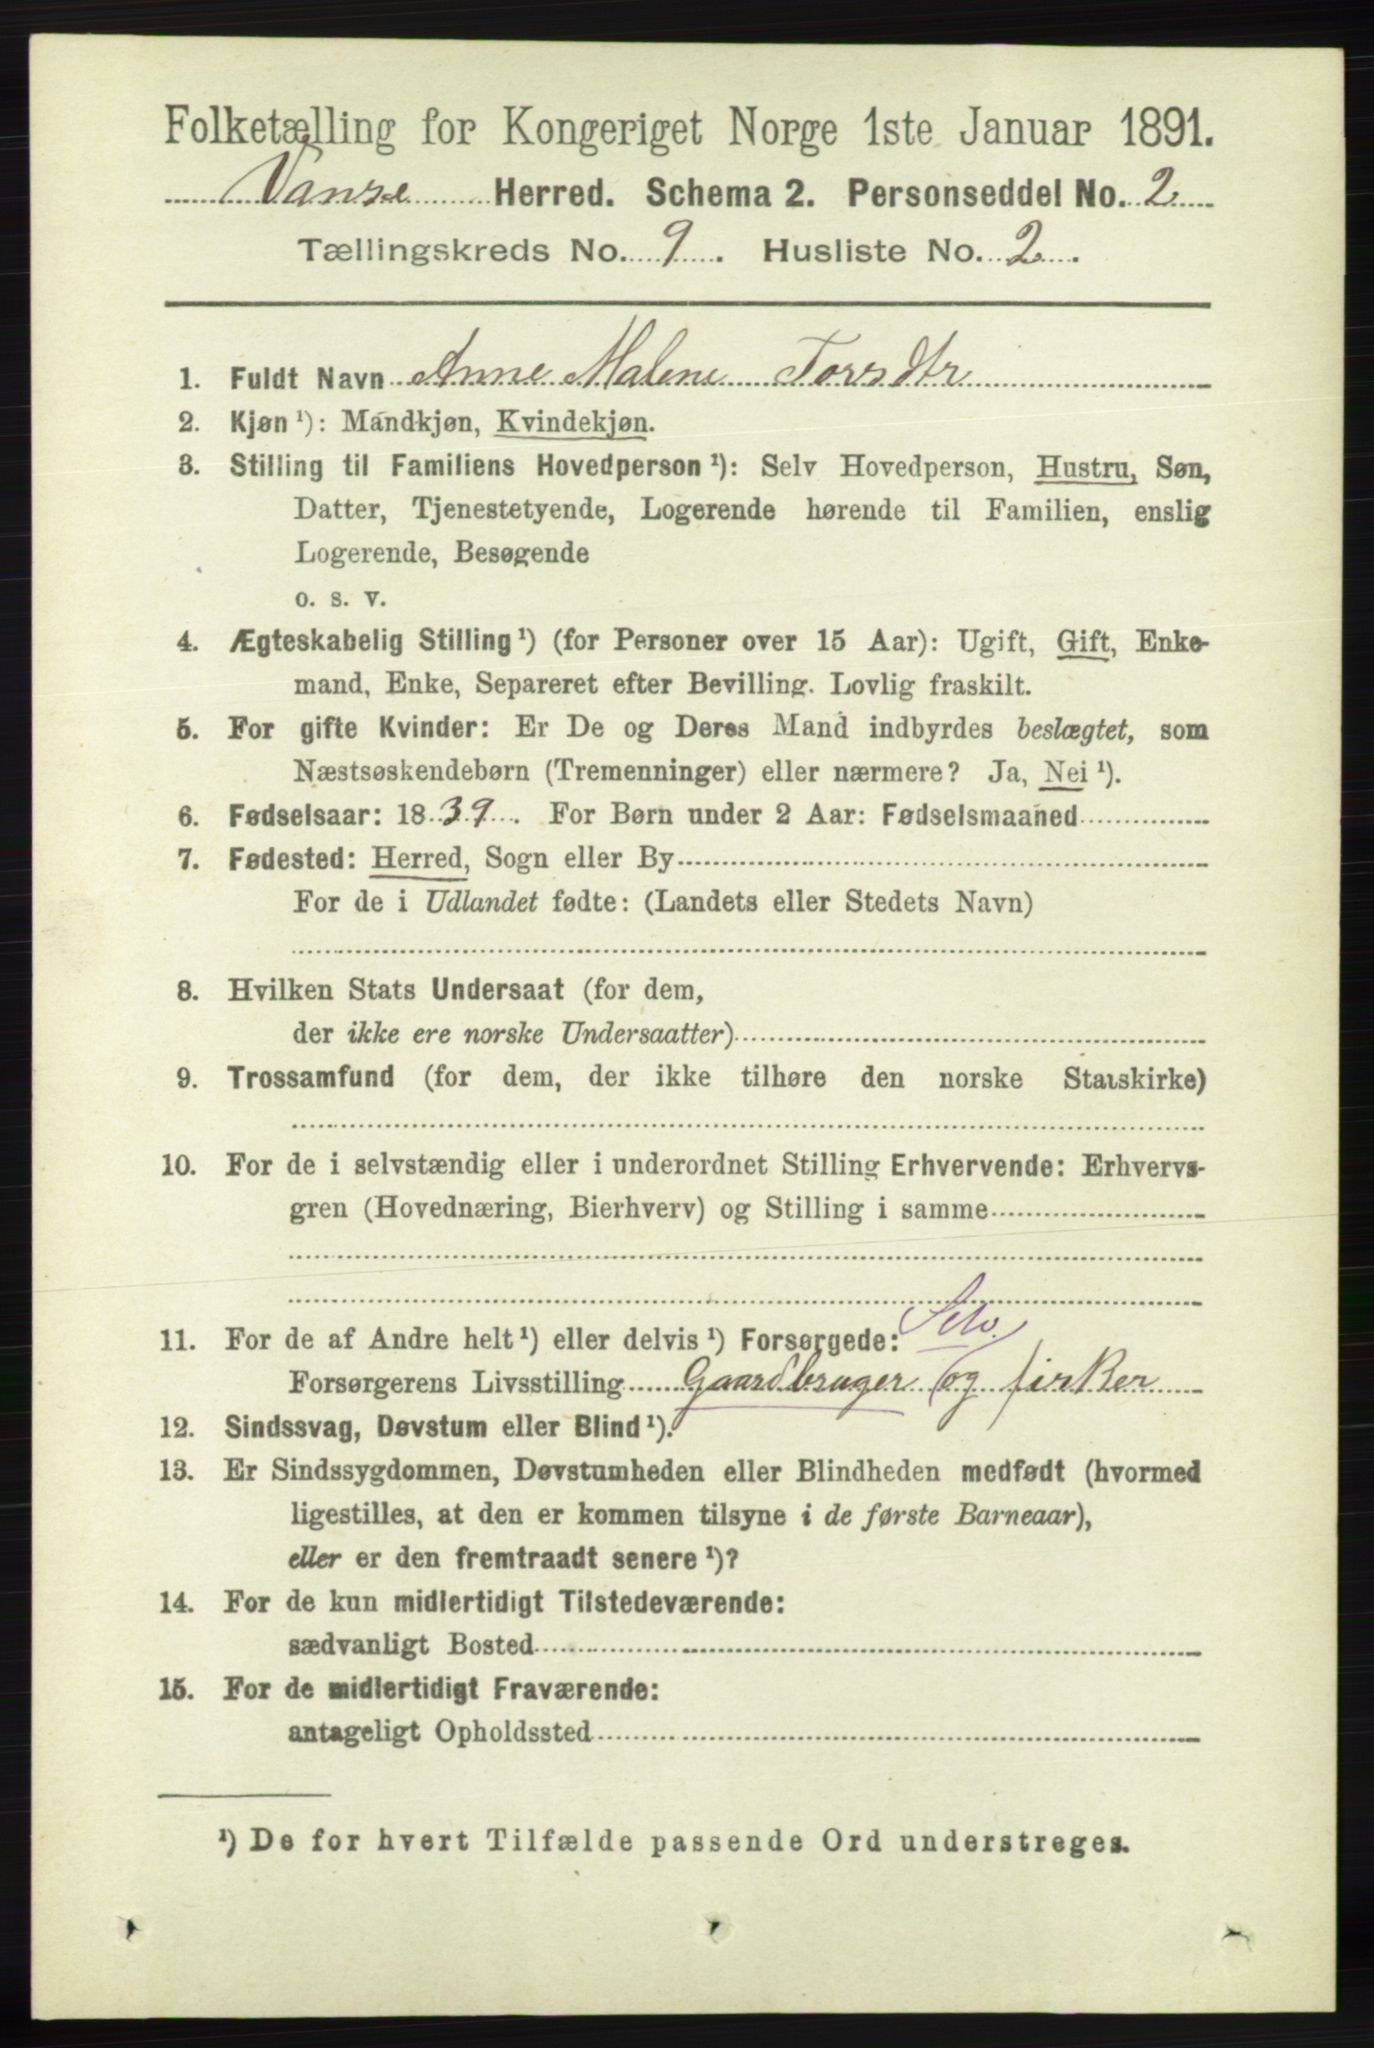 Folketælling for Kongeriget Norge 1ste Januar 1891.
Vanse Herred. Schema 2. Personseddel No. 2
Tællingskreds No. 9. Husliste No. 2.
1. Fuldt Navn Anne Malene Torsdtr
2. Kjøn ¹): Mandkjøn, Kvindekjøn.
3. Stilling til Familiens Hovedperson ¹): Selv Hovedperson, Hustru, Søn,
Datter, Tjenestetyende, Logerende hørende til Familien, enslig
Logerende, Besøgende
o. s. v.
4. Ægteskabelig Stilling ¹) (for Personer over 15 Aar): Ugift, Gift, Enke-
mand, Enke, Separeret efter Bevilling. Lovlig fraskilt.
5. For gifte Kvinder: Er De og Deres Mand indbyrdes beslægtet, som
Næstsøskendebørn (Tremenninger) eller nærmere? Ja, Nei ¹).
6. Fødselsaar: 1839. For Børn under 2 Aar: Fødselsmaaned
7. Fødested: Herred, Sogn eller By
For de i Udlandet fødte: (Landets eller Stedets Navn)
8. Hvilken Stats Undersaat (for dem,
der ikke ere norske Undersaatter)
9. Trossamfund (for dem, der ikke tilhøre den norske Statskirke)
10. For de i selvstændig eller i underordnet Stilling Erhvervende: Erhvervs-
gren (Hovednæring, Bierhverv) og Stilling i samme
Selv.
11. For de af Andre helt ¹) eller delvis ¹) Forsørgede:
Forsørgerens Livsstilling Gaardbruger og fisker
12. Sindssvag, Døvstum eller Blind ¹).
13. Er Sindssygdommen, Døvstumheden eller Blindheden medfødt (hvormed
ligestilles, at den er kommen tilsyne i de første Barneaar),
eller er den fremtraadt senere ¹)?
14. For de kun midlertidigt Tilstedeværende:
sædvanligt Bosted
15. For de midlertidigt Fraværende:
antageligt Opholdssted
¹) De for hvert Tilfælde passende Ord understreges.